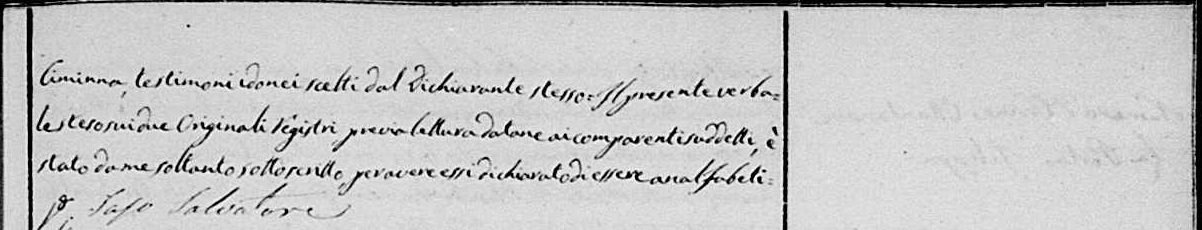 Ciminna, testimoni idonei scelti dal Dichiarante stesso = Il presente verba=
le steso sui due Originali Registri, previa lettura datane ai comparenti suddetti, è
stato da me soltanto sottoscritto, per avere essi dichiarato di essere analfabeti =
Salvatore